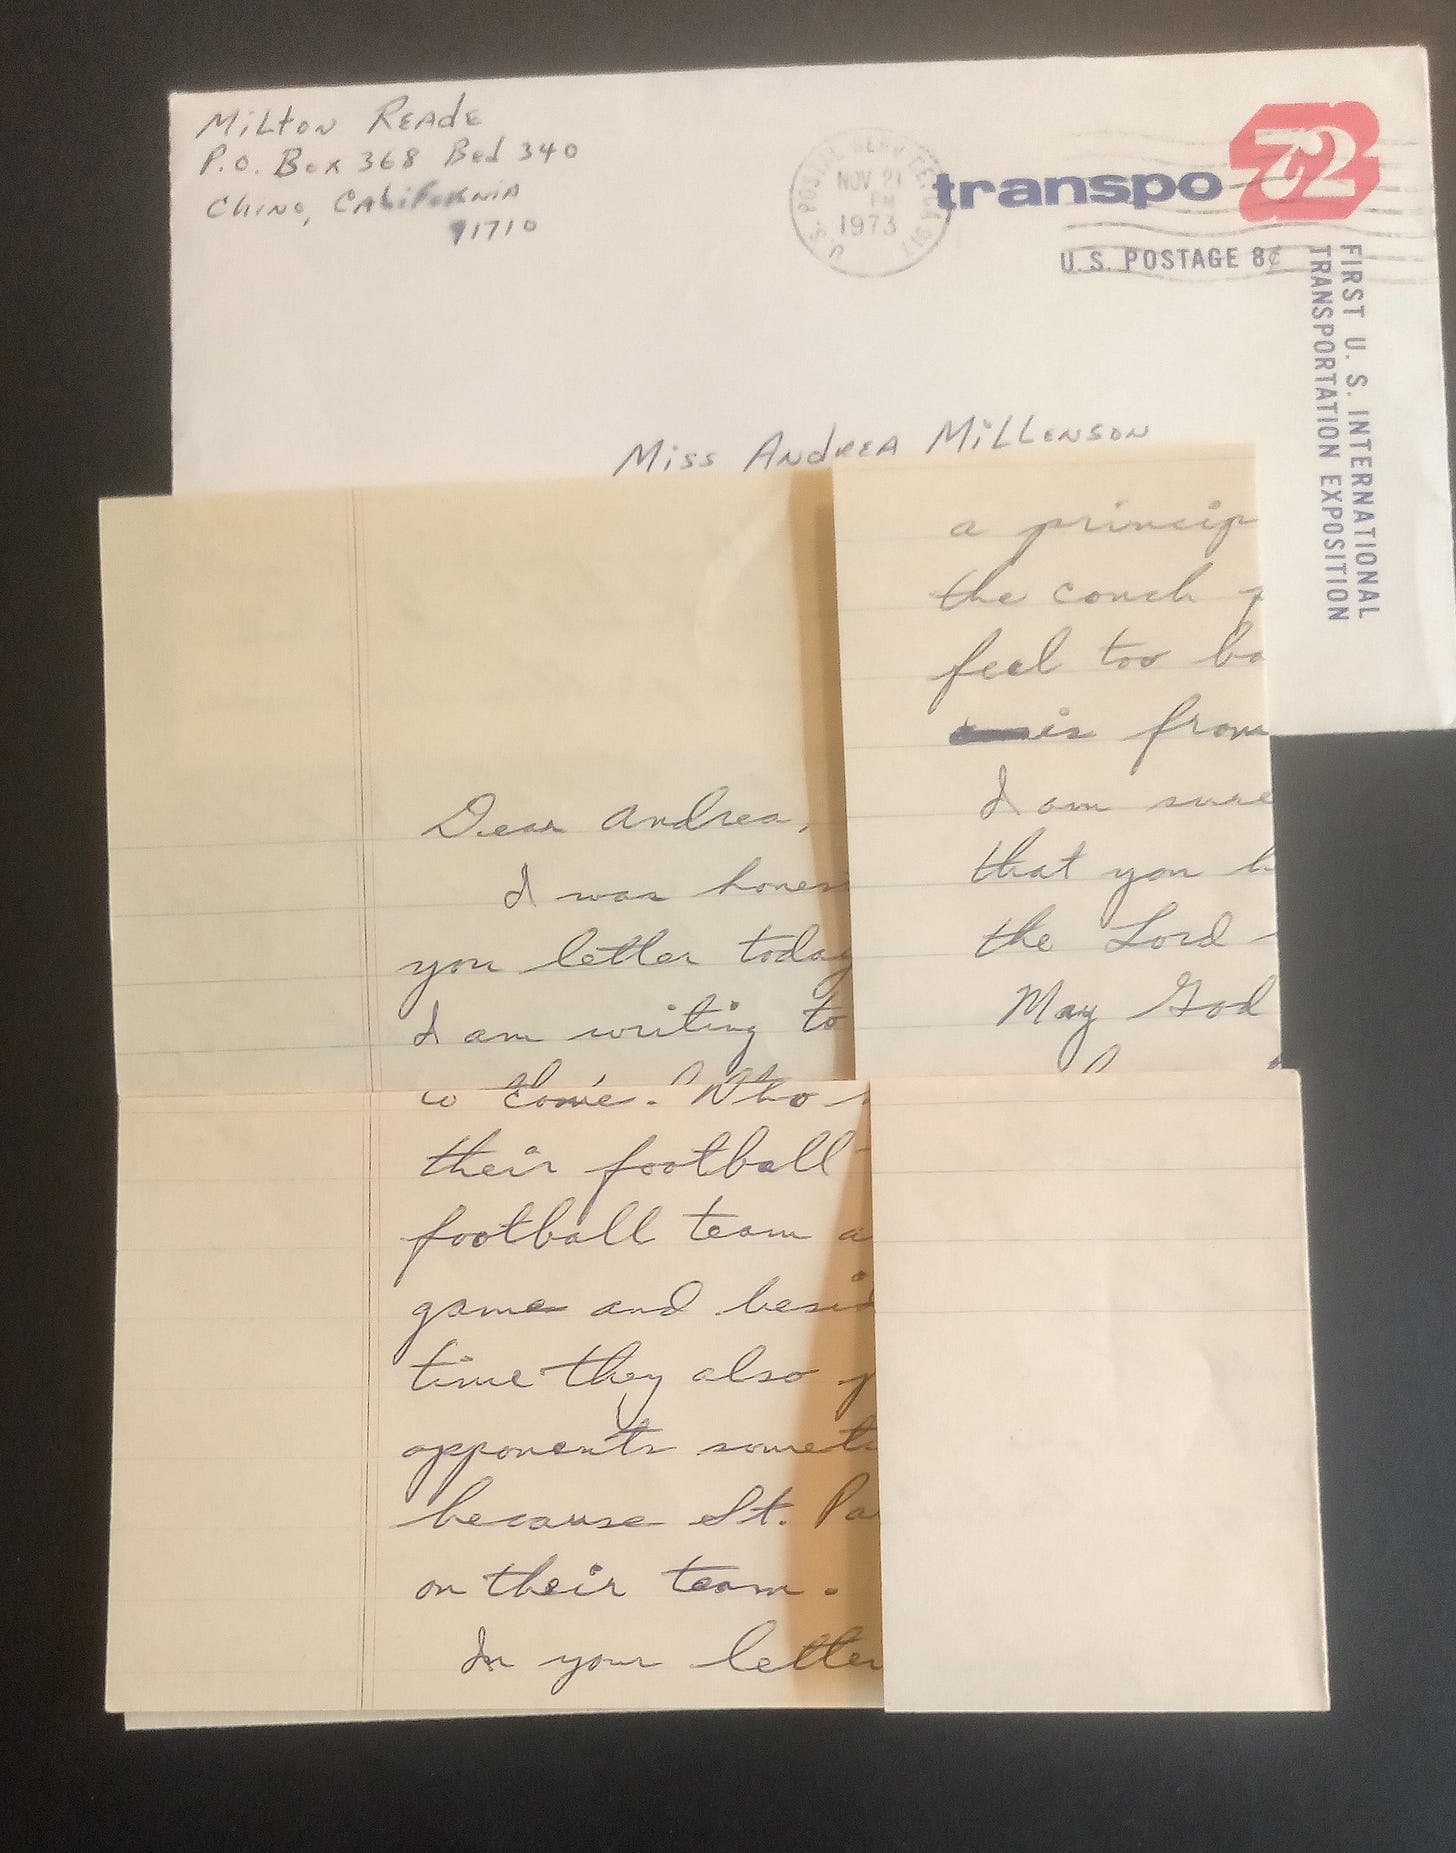 Milton Reade
P.O. Box 368 Bed 340
Chino, California
91710
NOV 21
PM
1973
U.S. POSTAL
transpo 72
U.S. POSTAGE 8¢
FIRST U.S. INTERNATIONAL
TRANSPORTATION EXPOSITION
Miss Andrea Millenson
Dear Andrea,
I was hones
you letter today
I am writing to
to come. Who
their football
football team a
game and besid
time they also p
opponents someti
because St. Pa
on their team.
In your letter
a princip
the coach
feel too ba
is from
I am sure
that you h
the Lord
May God